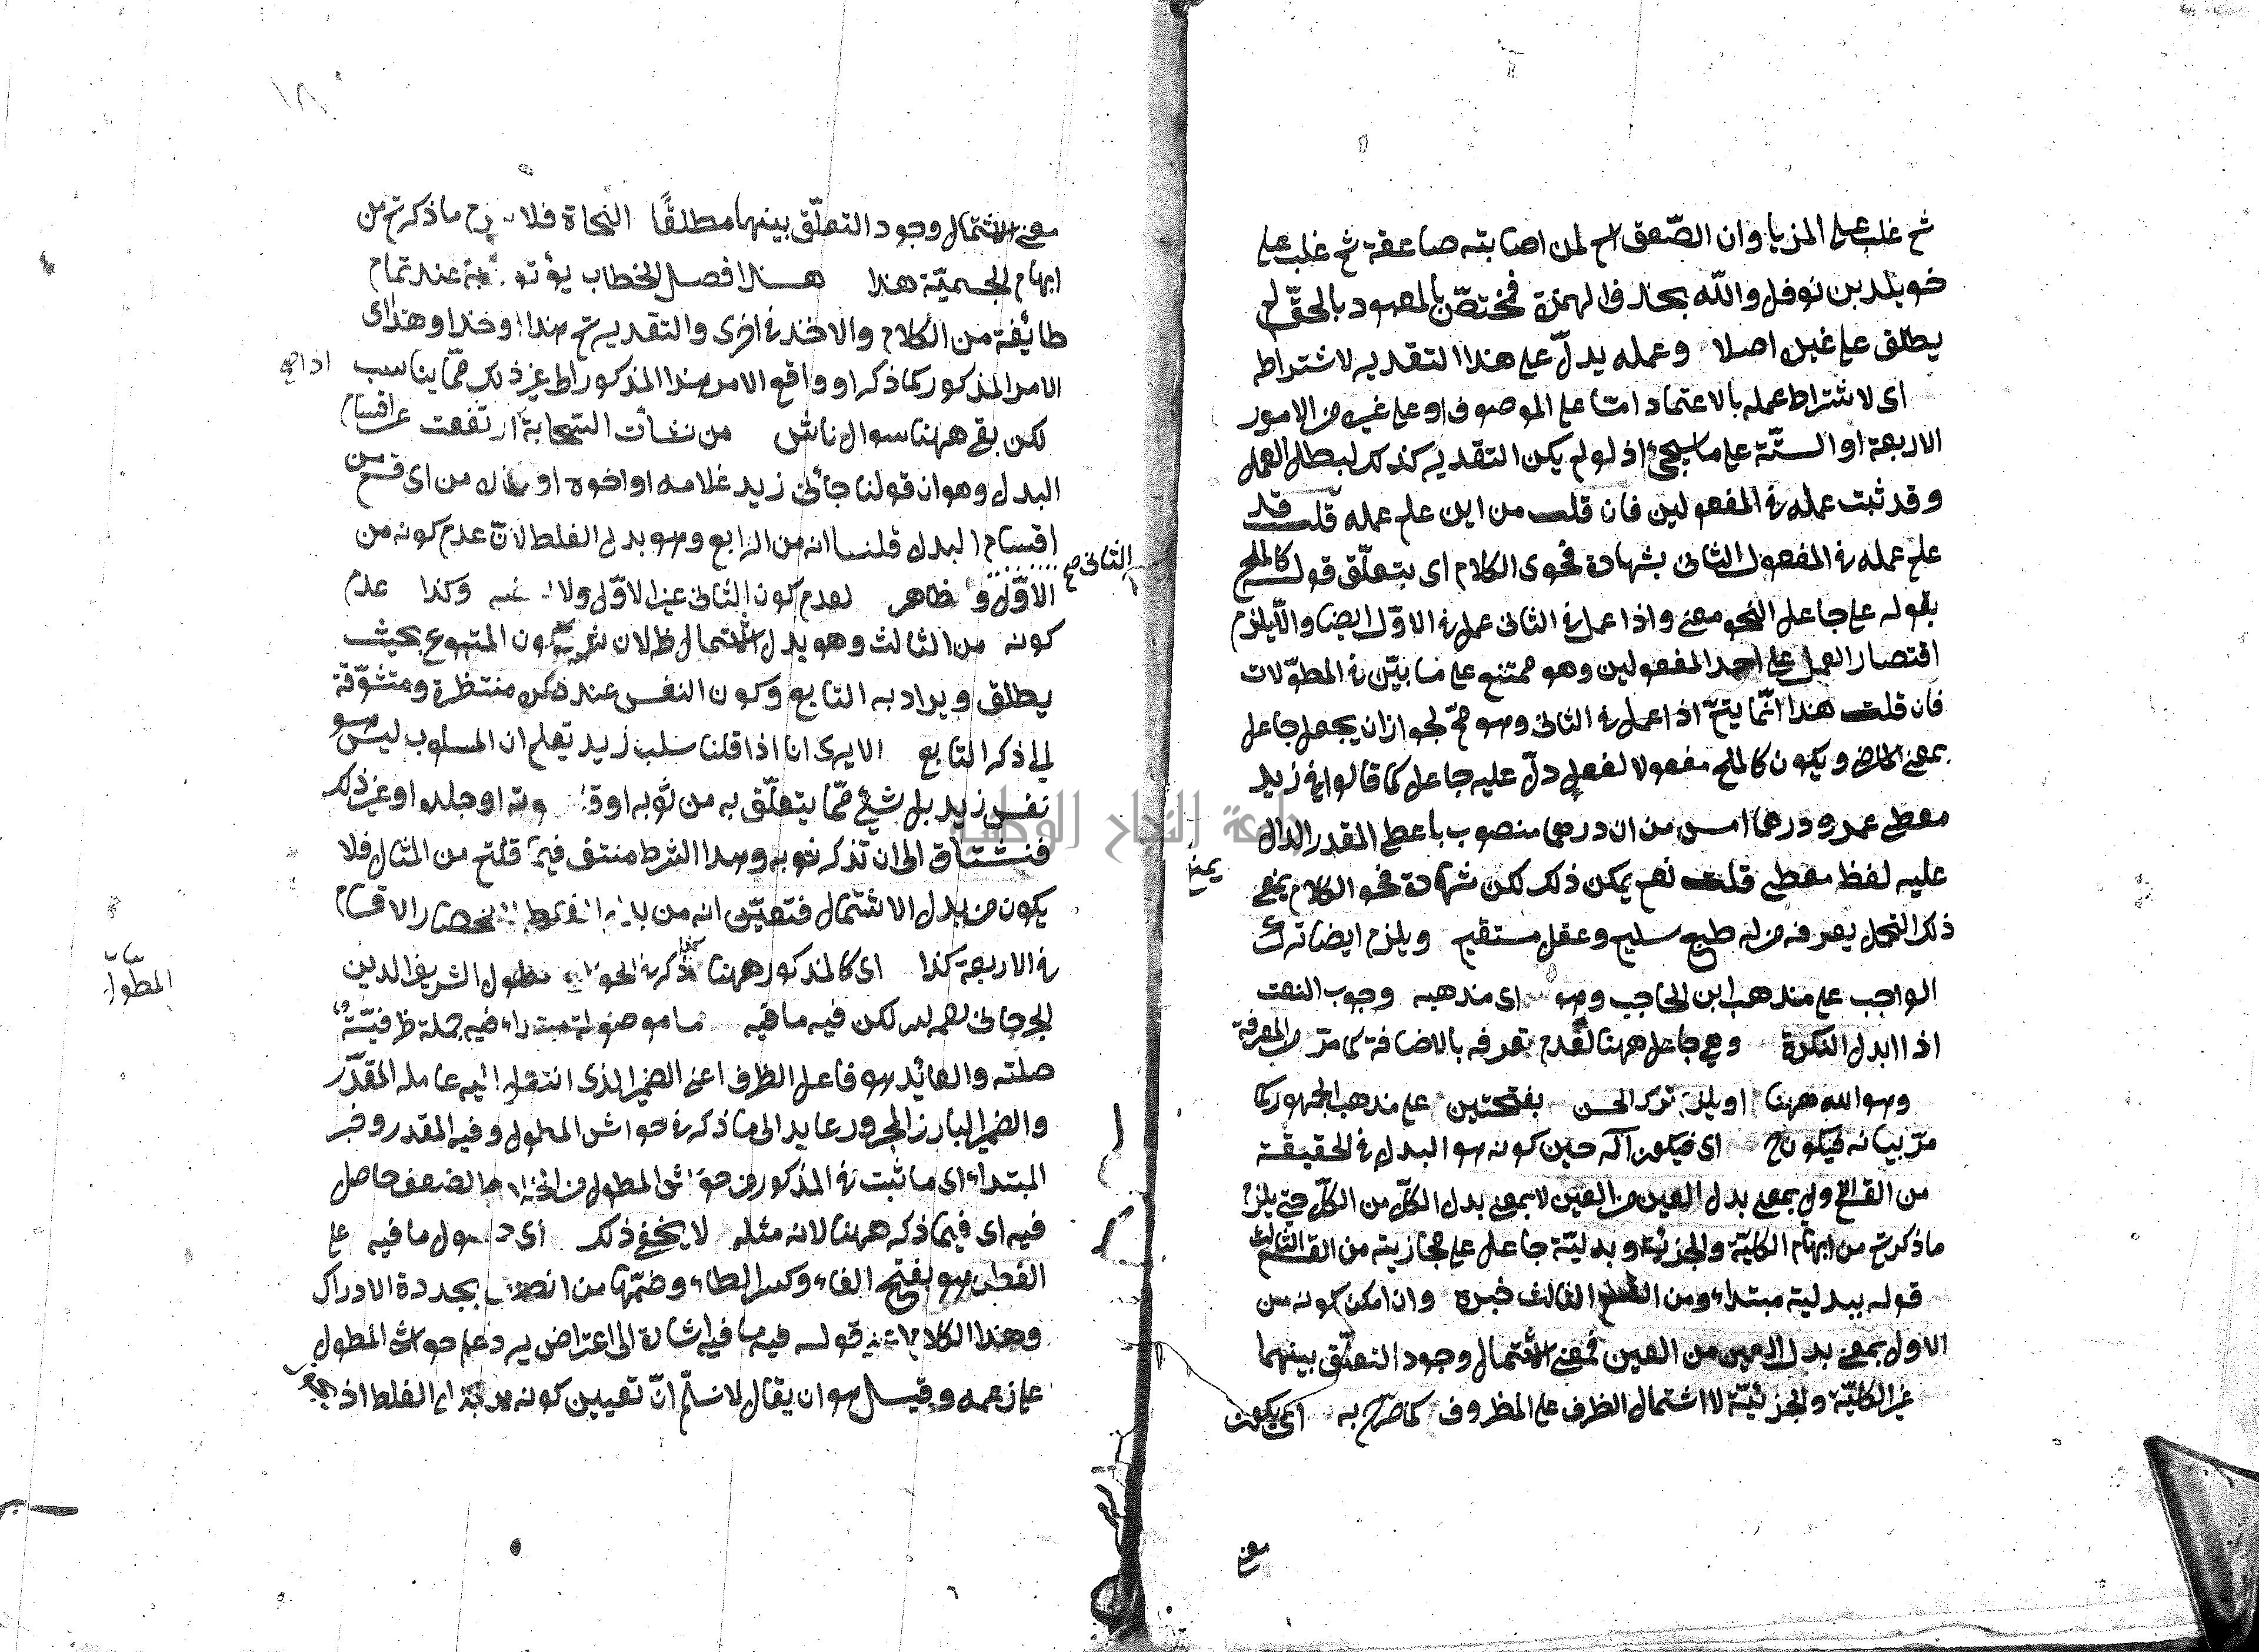 ثم غلب على الثريا وان الصّعق اسم لمن اصابته صاعقة ثم غلب على
خويلد بن نوفل والله بحذف الهمزة فمختصّ بالمعبود بالحقّ لم
يطلق على غيره اصلا وعمله يدلّ على هذا التقدير لاشتراط
اى لاشتراط عمله بالاعتماد امّا على الموصوف او على غيره من الامور
الاربعة او الستّة على ما سيجئ اذ لو لم يكن التقدير كذلك لبطل العمل
وقد ثبت عمله فى المفعولين فان قلت من اين علم عمله قلت قد
علم عمله فى المفعول الثانى بشهادة فحوى الكلام اى بتعلّق قوله كالملح
بقوله على جاعل النحو معنى واذا عمل فى الثانى عمل فى الاوّل ايضا والّا يلزم
اقتصار العمل على احد المفعولين وهو ممتنع على ما بيّن فى المطوّلات
فان قلت هذا انّما يتمّ اذا عمل فى الثانى وهو مم لجواز ان يجعل جاعل
بمعنى الماضى ويكون كالملح مفعولا لفعل دلّ عليه جاعل كما قالوا فى زيد
معطى عمرو درهما امس من ان درهما منصوب باعطى المقدر الدال
عليه لفظ معطى قلت نعم يمكن ذلك لكن شهادة فحو الكلام يمنع
يمنع
ذلك التمحل يعرفه من له طبع سليم وعقل مستقيم ويلزم ايضا ترك
الواجب على مذهب ابن الحاجب وهو اى مذهبه وجوب النعت
اذا ابدل النكرة وهى جاعل ههنا لعدم تعرفه بالاضافة كما مرّ من المعرفة
وهو الله ههنا او يلزم ترك الحسن بفتحتين على مذهب الجمهور كما
مرّ بيانه فيكون ح اى فيكون آله حين كونه هو البدل فى الحقيقة
من القسم الاول بمعنى بدل العين من العين لا بمعنى بدل الكلّ من الكلّ حتى يلزم
ما ذكرتم من ابهام الكليّة والجزئية وبدليّة جاعل على مجازيته من القسم الثالث
قوله ببدلية مبتداء ومن القسم الثالث خبره وان امكن كونه من
الاول بمعنى بدل العين من العين فمعنى الاشتمال وجود التعلّق بينهما
غير الكليّة والجزئيّة لا اشتمال الظرف على المظروف كما صرّح به اى بكون
معنى
١٨
معنى الاشتمال وجود التعلّق بينهما مطلقًا النحاة فلا يرد ما ذكرتم من
ابهام الجسميّة هذا هذا فصل الخطاب يؤتى به عند تمام
طائفة من الكلام والاخذ فى اخرى والتقدير تم هذا او خذا وهذا اى
الامر المذكور كما ذكر او واقع الامر هذا المذكور الى غير ذلك ممّا يناسب
لكن بقى ههنا سوال ناش من نشأت السّحابة ارتفعت عن اقسام
البدل وهو ان قولنا جائنى زيد غلامه او اخوه او من اى قسم من
اقسام البدل قلنا انه من الرابع وهو بدل الغلط لانّ عدم كونه من
الثانى صح
الاوّل و ظاهر لعدم كون الثانى عين الاوّل ولا بعضه وكذا عدم
كونه من الثالث وهو بدل الاشتمال ظ لان شرطه كون المتبوع بحيث
يطلق ويراد به التابع وكون النفس عند ذكره منتظرة ومتشوّقة
الى ذكر التابع الا يرى انا اذا قلنا سلب زيد تعلم ان المسلوب ليس هو
نفس زيد بل شيئ ممّا يتعلّق به من ثوبه او او جلده او غير ذلك
فنشتاق الى ان تذكر ثوبه وهذا الشرط منتف فيما قلتم من المثال فلا
يكون من بدل الاشتمال فتعيّن انه من بدل الغلط لانحصار الاقسام
فى الاربعة كذا اى كالمذكور ههنا ذكر فى الحواشى مطول الشريف الدين
المطوّل
الجرجانى رحمه الله لكن فيه ما فيه ما موصولة مبتداء فيه جملة ظرفيّة
صلته والعائد هو فاعل الظرف اعنى الضمير الذى انتقل اليه عامله المقدّر
والضمير البارز المجرور عايد الى ما ذكر فى حواشى المطول وفيه المقدر وخبر
المبتداء اى ما ثبت فى المذكور من حواشى المطول من والضعف حاصل
فيه اى فيما ذكر ههنا لانه مثله لا يخفى ذلك اى حصول ما فيه على
الفطن هو بفتح الفاء وكسر الطاء وضمّها من اتصف بجددة الادراك
وهذا الكلام اعنى قوله فيه ما فيه اشارة الى اعتراض يرد على حواشى المطول
على زعمه وقيل هو ان يقال لا نسلّم انّ تعيين كونه من الغلط اذ